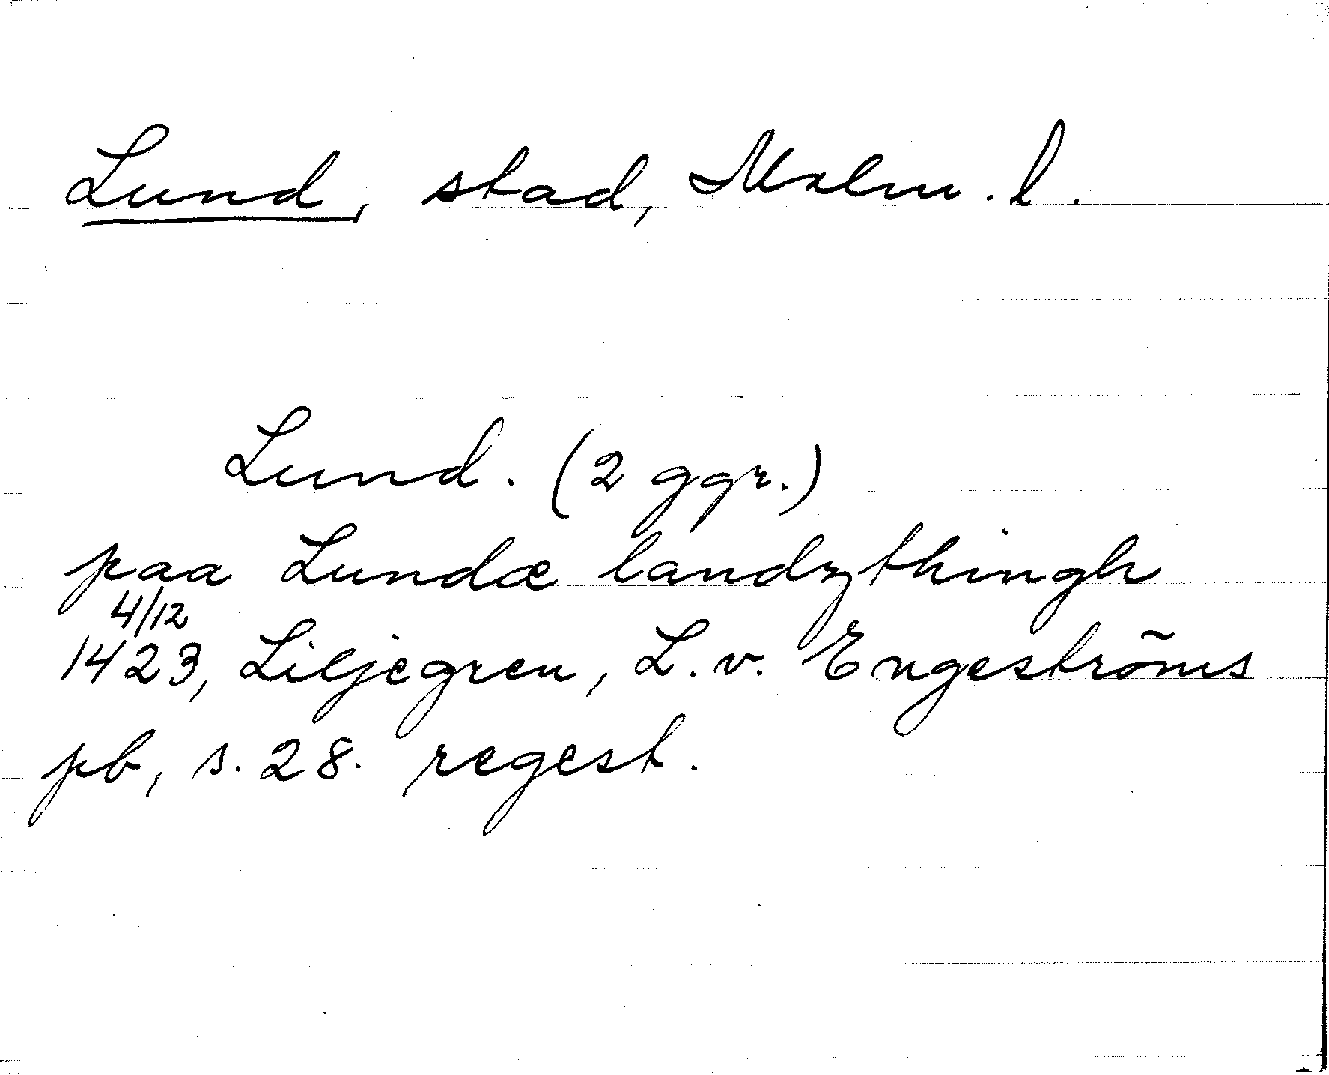 Lund, stad, Malm. l.
Lund. (2 ggr.)
paa Lundæ landzthingh
4/12
1423, Liljegren, L. v. Engeströms
pb, s. 28. regest.